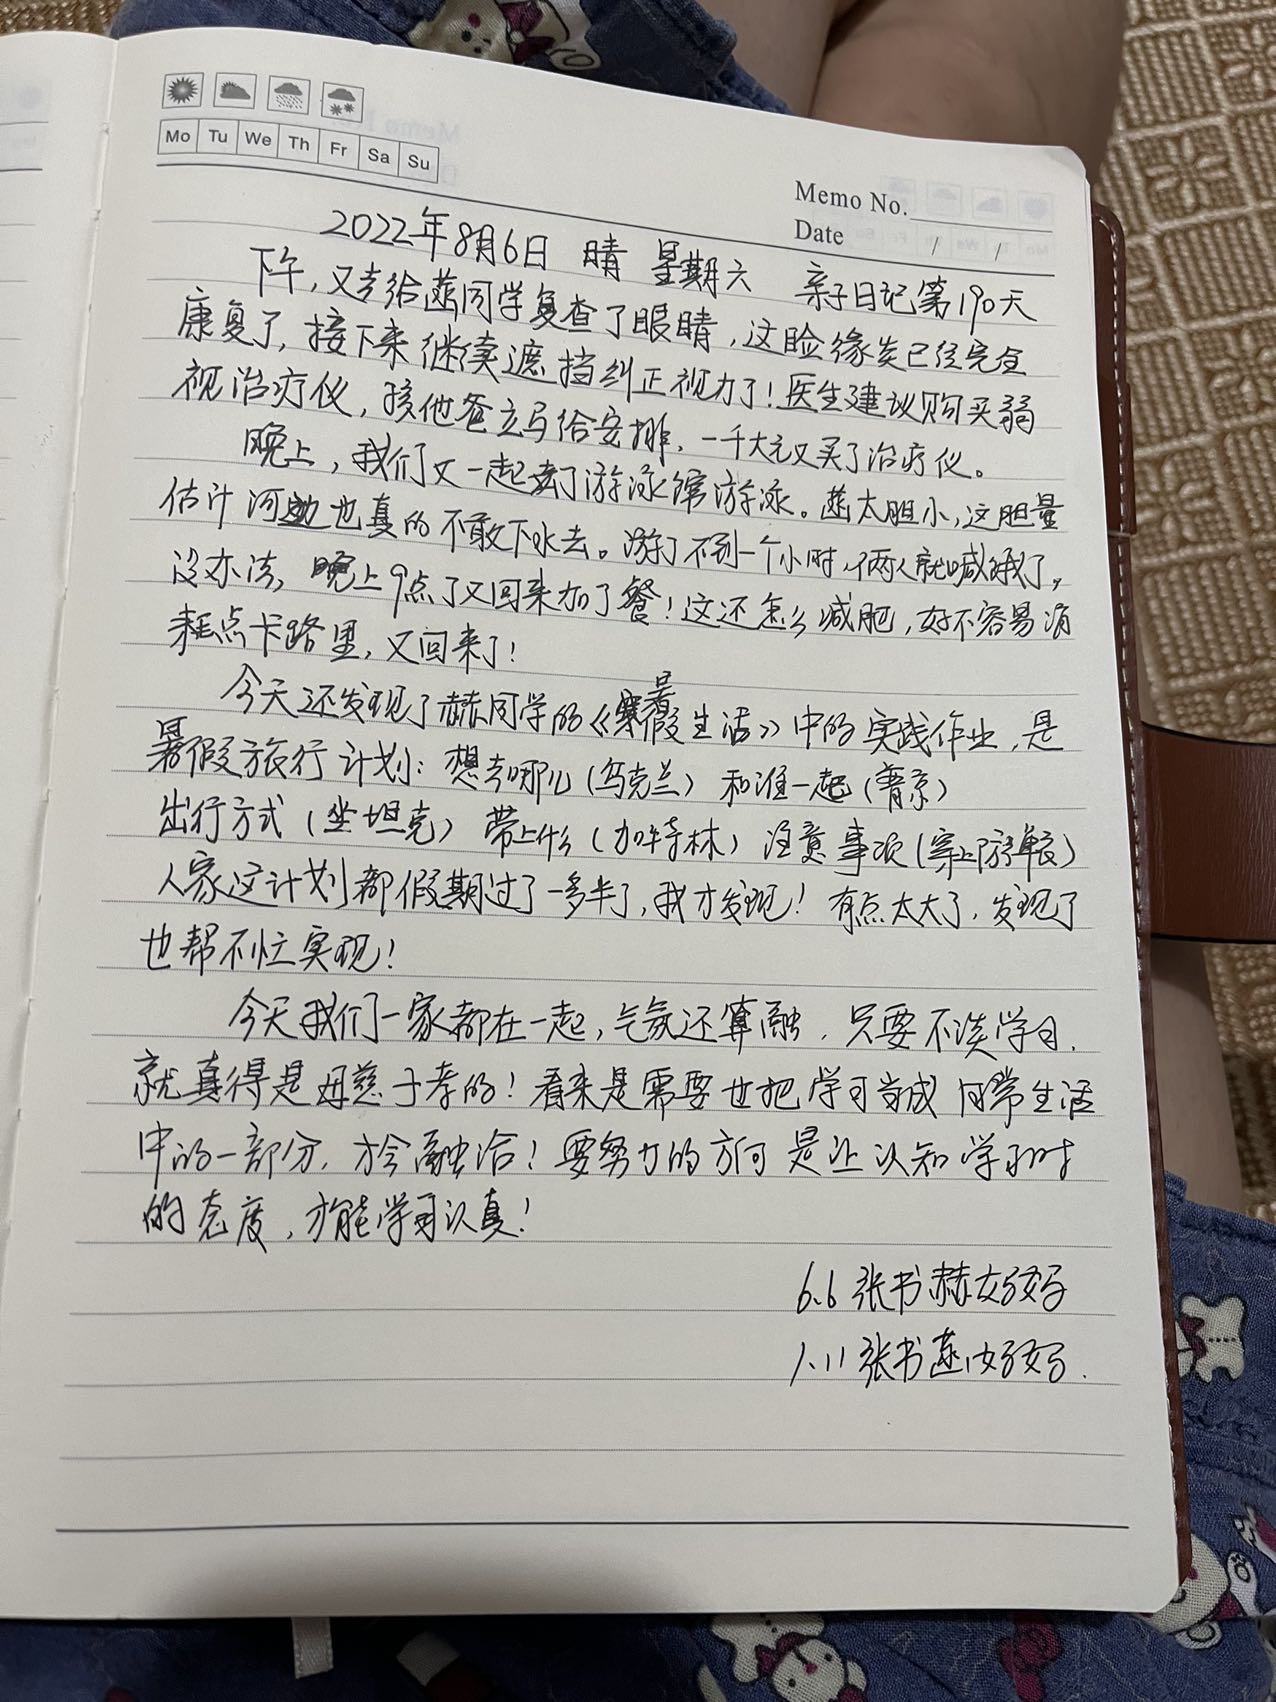 Mo Tu We Th Fr Sa Su
Memo No.
Date / /
2022年8月6日 晴 星期六 亲子日记第190天
下午，又去给燕同学复查了眼睛，这睑缘炎已经完全
康复了，接下来继续遮挡纠正视力了！医生建议购买弱
视治疗仪，孩他爸立马给安排，一千大元又买了治疗仪。
晚上，我们又一起去了游泳馆游泳。燕太胆小，这胆量
估计河边也真的不敢下水去。游了不到一个小时，俩人就喊饿了，
没办法，晚上9点了又回来加了餐！这还怎么减肥，好不容易消
耗点卡路里，又回来了！
今天还发现了赫同学的《暑假生活》中的实践作业，是
暑假旅行计划：想去哪儿（乌克兰） 和谁一起（普京）
出行方式（坐坦克） 带上什么（加特林） 注意事项（穿上防弹衣）
人家这计划都假期过了一多半了，我才发现！有点太大了，发现了
也帮不忙实现！
今天我们一家都在一起，气氛还算融，只要不谈学习，
就真得是母慈子孝的！看来是需要也把学习当成日常生活
中的一部分，才会融洽！要努力的方向是让认知学习时
的态度，才能学习认真！
6.6 张书赫好好
1.11 张书燕好好.